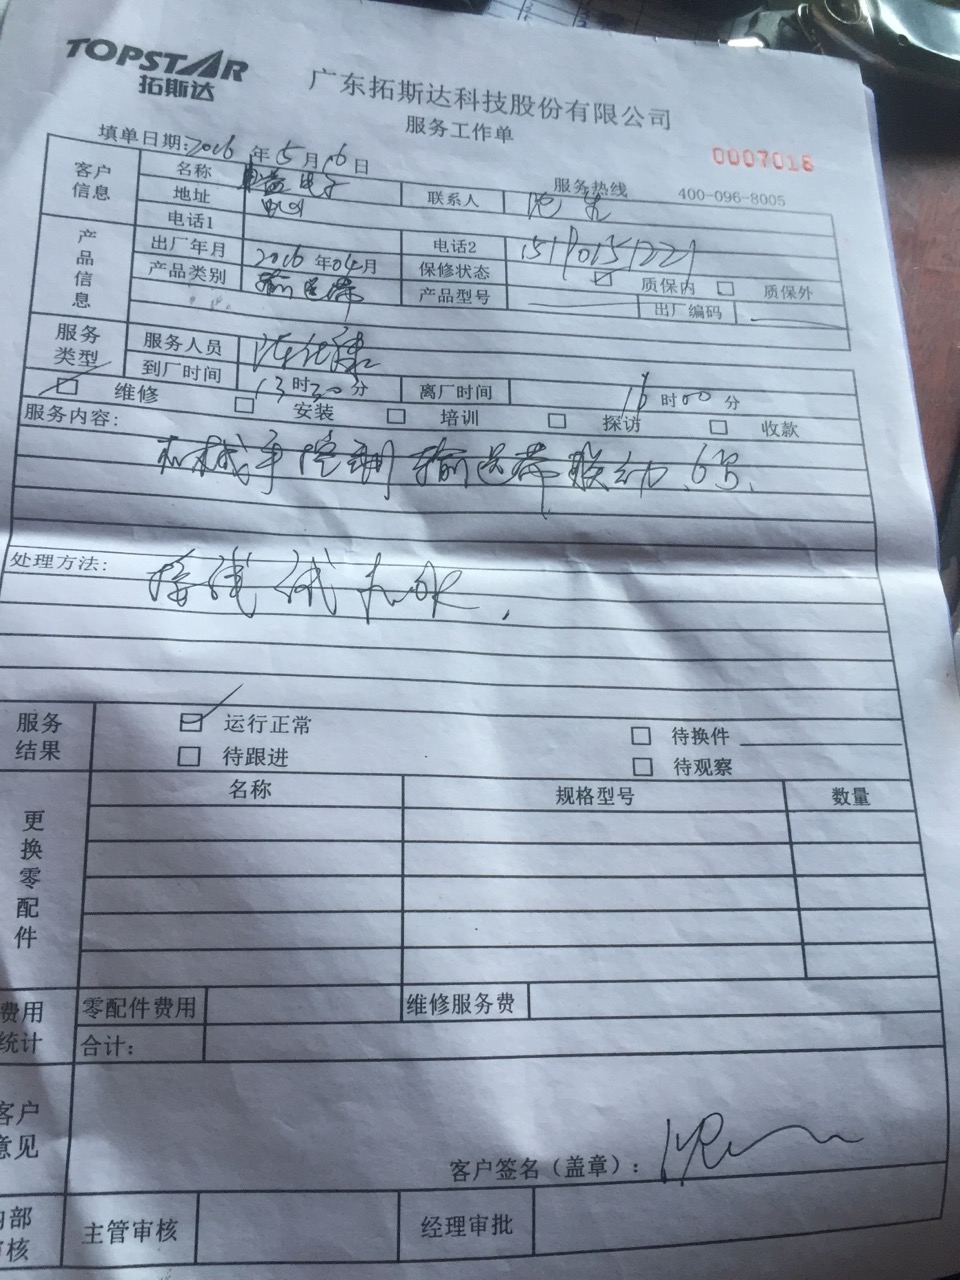 TOPSTAR
拓斯达
广东拓斯达科技股份有限公司
服务工作单
填单日期:2016年5月6日
0007016
服务热线 400-096-8005
客户信息
名称 电子
联系人
地址
电话1
电话2
产品信息
出厂年月 2016年04月
保修状态 质保内 质保外
产品类别 输送带
产品型号
出厂编码
服务类型
服务人员
到厂时间 13时30分
离厂时间 16时00分
维修 安装 培训 探访 收款
服务内容:
机械手控制输送带联动、6台、
处理方法:
接线试机OK.
服务结果
运行正常 待换件
待跟进 待观察
更换零配件
名称 规格型号 数量
费用统计
零配件费用 维修服务费
合计:
客户意见
客户签名(盖章):
内部审核
主管审核 经理审批